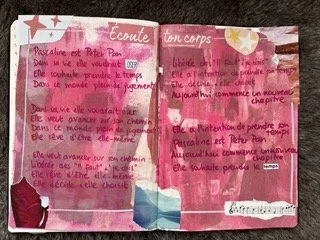 Écoute ton corps
Pascaline est Peter Pan
Dans sa vie elle voudrait oser
Elle souhaite prendre le temps
Dans ce monde plein de jugements
Dans sa vie elle voudrait oser
Elle veut avancer sur son chemin
Dans ce monde plein de jugement
Elle rêve d'être elle-même
Elle veut avancer sur son chemin
Libérée des "Il faut", "je dois"
Elle rêve d'être elle-même
Elle décide, elle choisit
Libérée des "Il faut", "je dois"
Elle a l'intention de prendre son temps
Elle décide, elle choisit
Aujourd'hui commence un nouveau
chapitre
Elle a l'intention de prendre son
temps
Pascaline est Peter Pan
Aujourd'hui commence un nouveau
chapitre
Elle souhaite prendre le temps